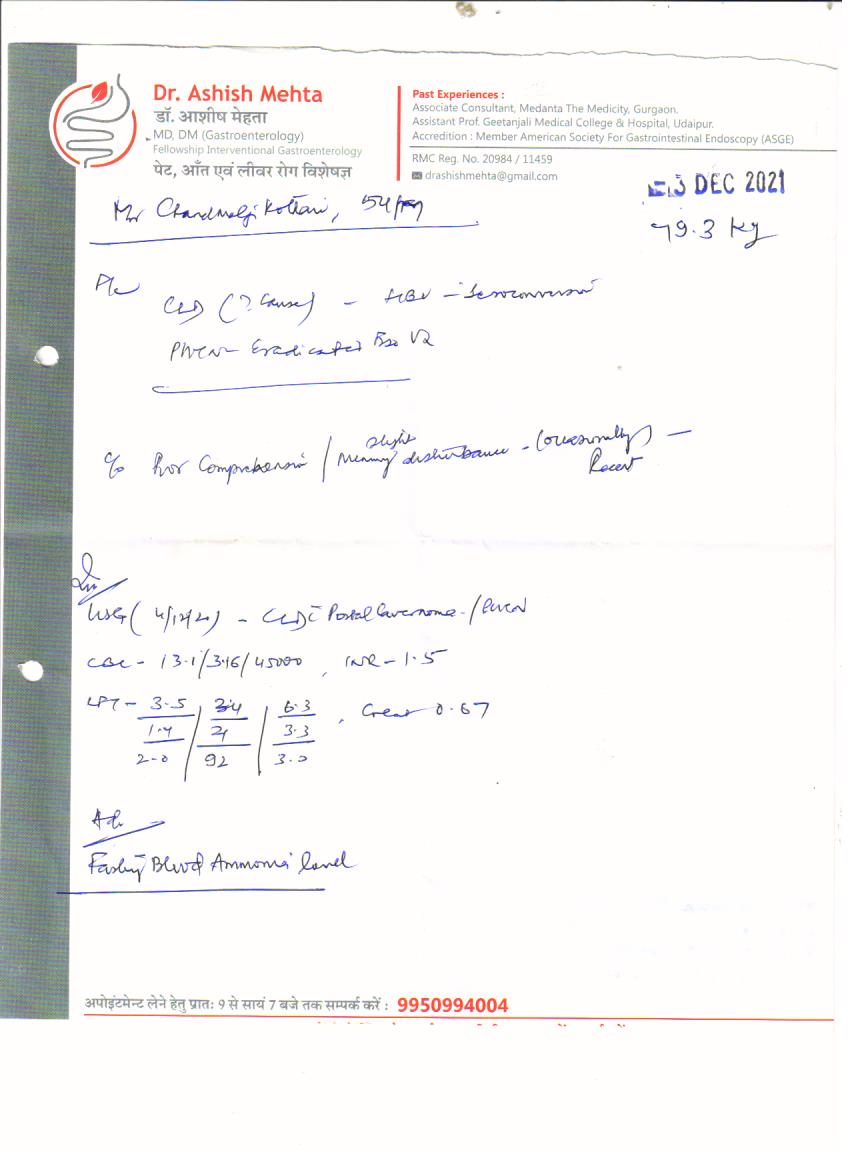 Dr. Ashish Mehta
डॉ. आशीष मेहता
MD, DM (Gastroenterology)
Fellowship Interventional Gastroenterology
पेट, आँत एवं लीवर रोग विशेषज्ञ
Past Experiences :
Associate Consultant, Medanta The Medicity, Gurgaon.
Assistant Prof. Geetanjali Medical College & Hospital, Udaipur.
Accredition : Member American Society For Gastrointestinal Endoscopy (ASGE)
RMC Reg. No. 20984 / 11459
drashishmehta@gmail.com
DEC 2021
Mr Chandmalji Kothari, 54/
79.3 kg
CLD (? Cause) - HBV - Seroconversion
Eradicated
c/o Poor Comprehension / slight Memory disturbance - (occasionally) -
Recent
USG ( - CLD c Portal Cavernoma /
CBC - 13.1/3.16/45000, INR - 1.5
LFT - 3.5 / 34 / 6.3, Creat 0.67
1.4 / 21 / 3.3
2.0 / 92 / 3.0
Adv
Fasting Blood Ammonia level
अपोइंटमेन्ट लेने हेतु प्रातः 9 से सायं 7 बजे तक सम्पर्क करें : 9950994004